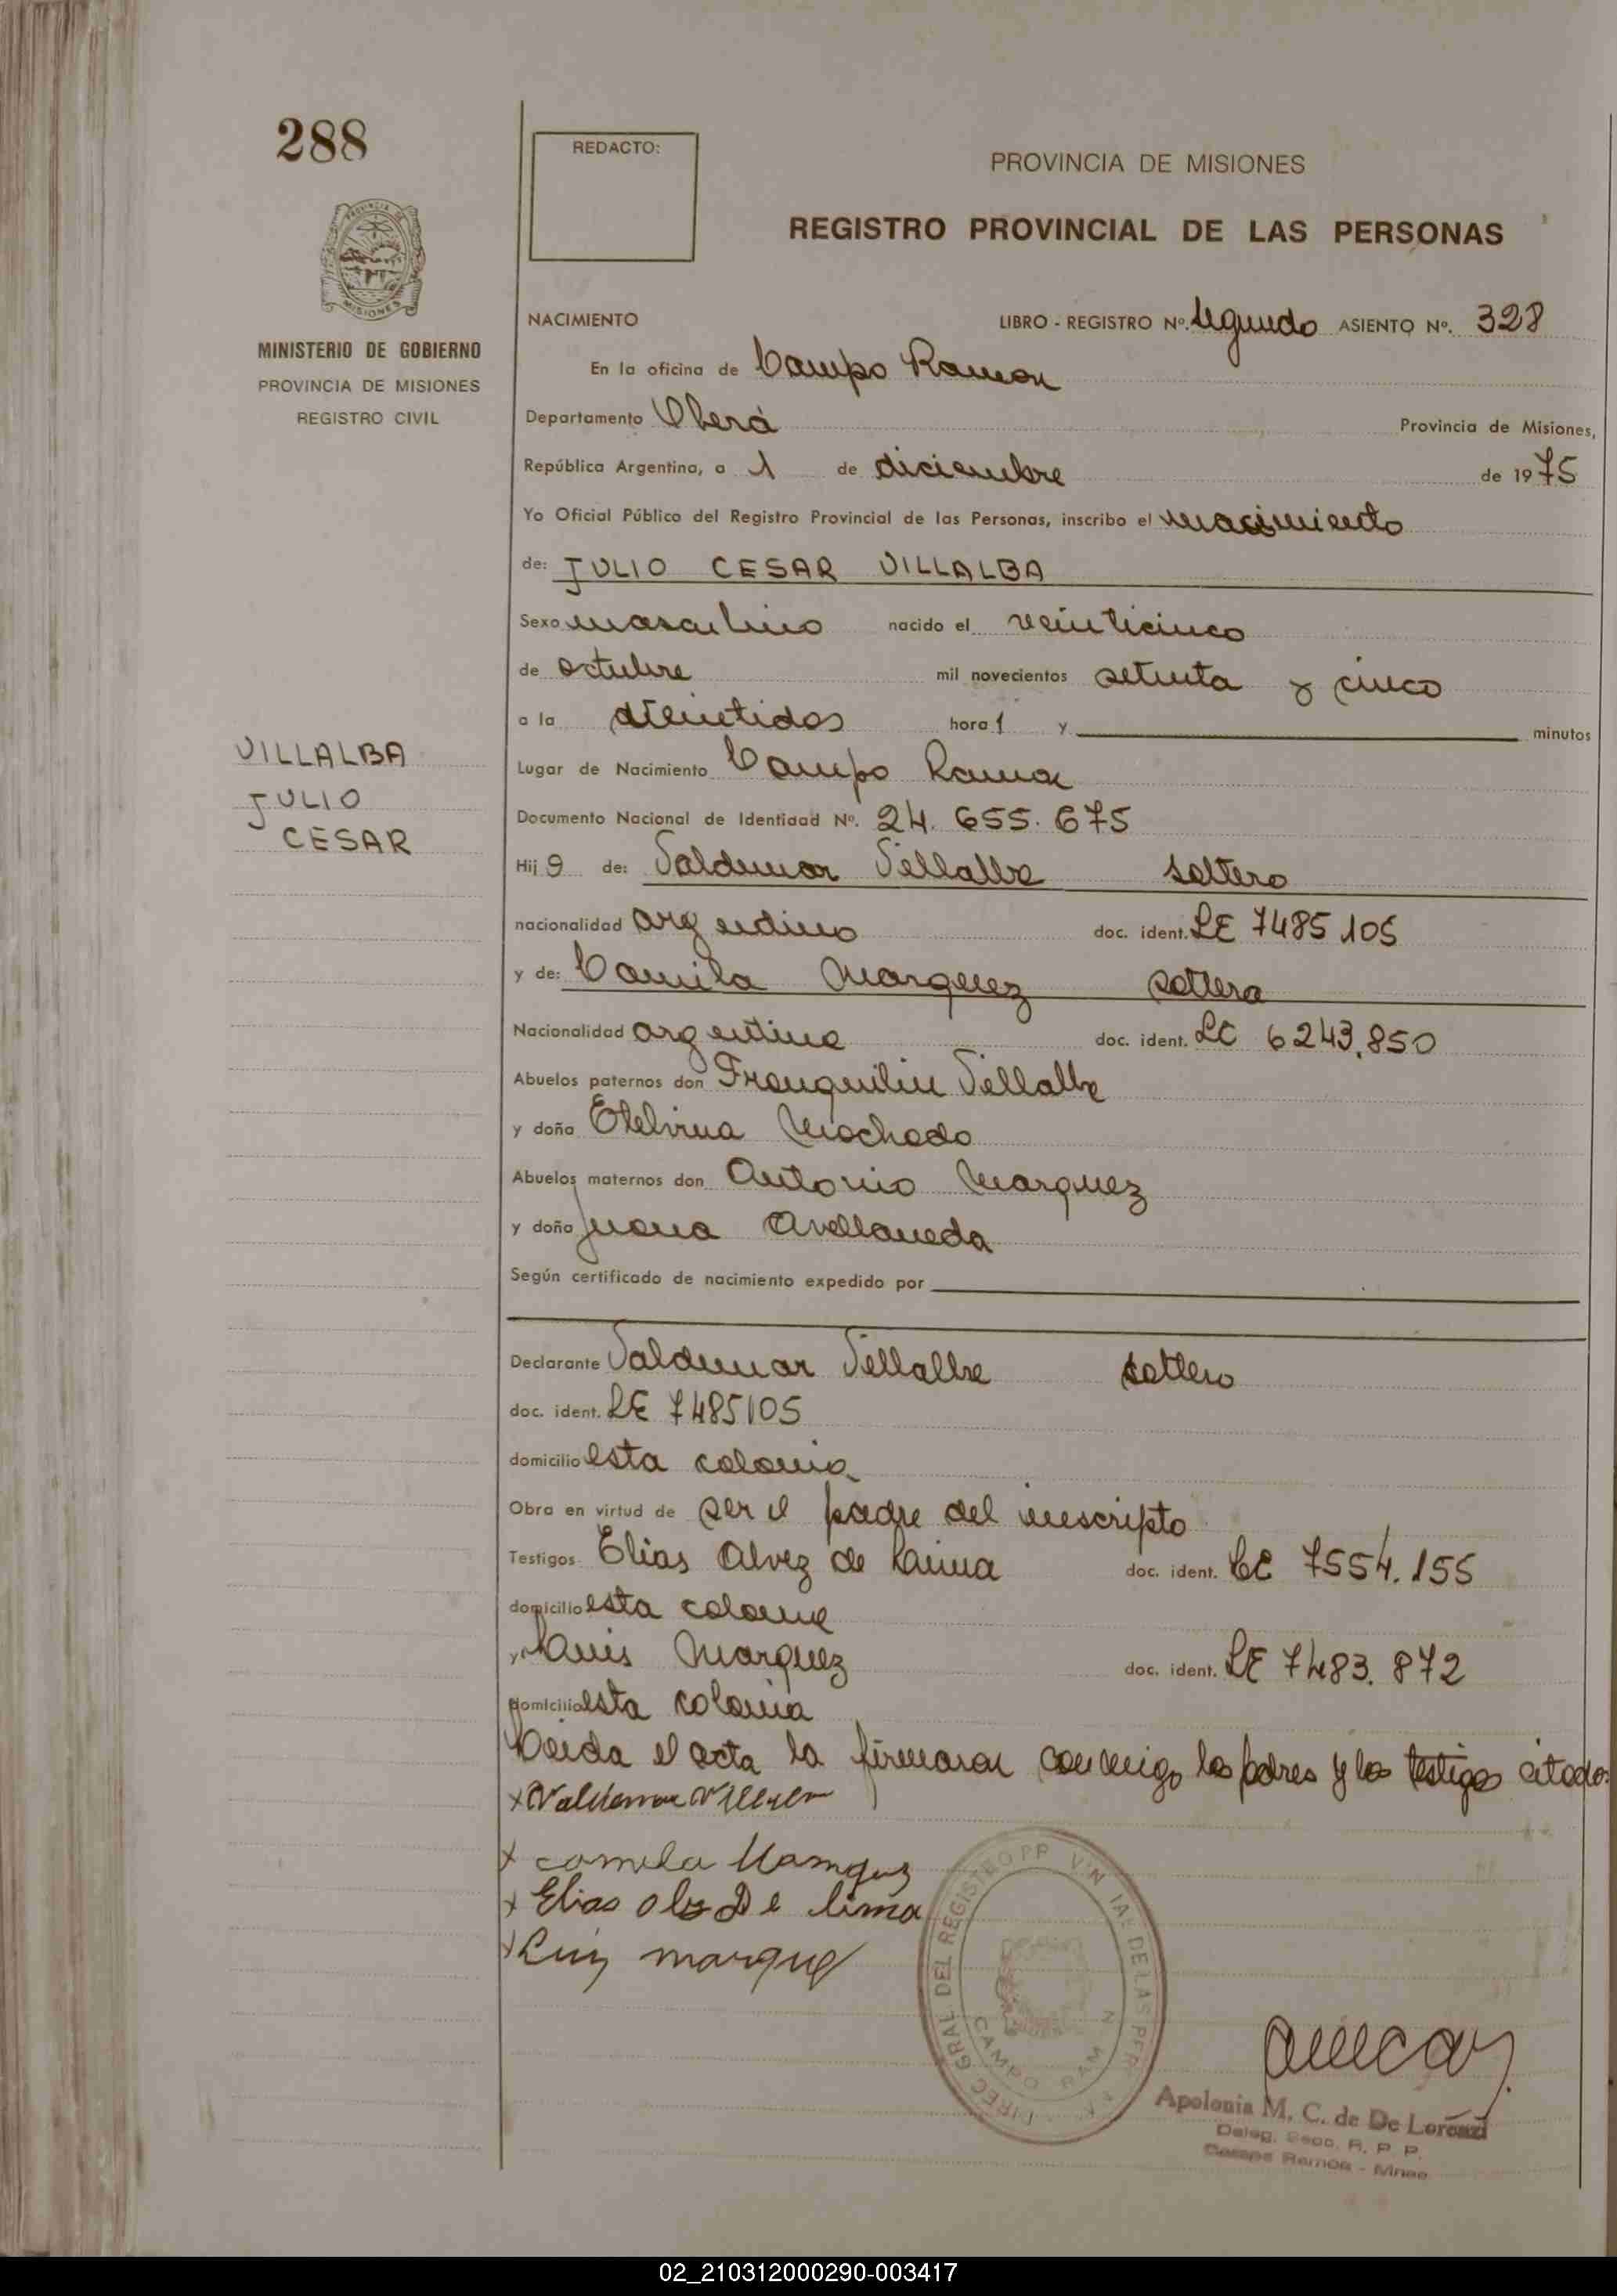 288
REDACTO:
PROVINCIA DE MISIONES
REGISTRO PROVINCIAL DE LAS PERSONAS
PROVINCIA DE
MISIONES
MINISTERIO DE GOBIERNO
PROVINCIA DE MISIONES
REGISTRO CIVIL
NACIMIENTO LIBRO - REGISTRO Nº. Segundo ASIENTO Nº. 328
En la oficina de Campo Ramon
Departamento Oberá Provincia de Misiones,
República Argentina, a 1 de diciembre de 1975
Yo Oficial Público del Registro Provincial de las Personas, inscribo el nacimiento
de: JULIO CESAR VILLALBA
Sexo masculino nacido el veinticinco
de octubre mil novecientos setenta y cinco
a la hora 1 y minutos
VILLALBA
JULIO
CESAR
Lugar de Nacimiento Campo Ramon
Documento Nacional de Identidad Nº. 24.655.675
Hij o de: Valdemar Villalba soltero
nacionalidad argentino doc. ident. LE 7485105
y de: Camila Marquez soltera
Nacionalidad argentina doc. ident. LC 6243.850
Abuelos paternos don Franquilin Villalba
y doña Etelvina Machado
Abuelos maternos don Antonio Marquez
y doña Juana Avellaneda
Según certificado de nacimiento expedido por
Declarante Valdemar Villalba soltero
doc. ident. LE 7485105
domicilio esta colonia
Obra en virtud de ser el padre del inscripto
Testigos Elias Alvez de Lima doc. ident. LE 7554.155
domicilio esta colonia
y Luis Marquez doc. ident. LE 7483.872
domicilio esta colonia
Leida el acta la firmaron conmigo los padres y los testigos citados
x Valdemar
x camila Marquez
x Elias De lima
x Luis marque
DIREC GRAL DEL REGISTRO PROVINCIAL DE LAS PER
CAMPO RAMON
Apolonia M. C. de De Lorenzi
Deleg. Secc. R. P. P.
Campo Ramon - Mnes
02_210312000290-003417